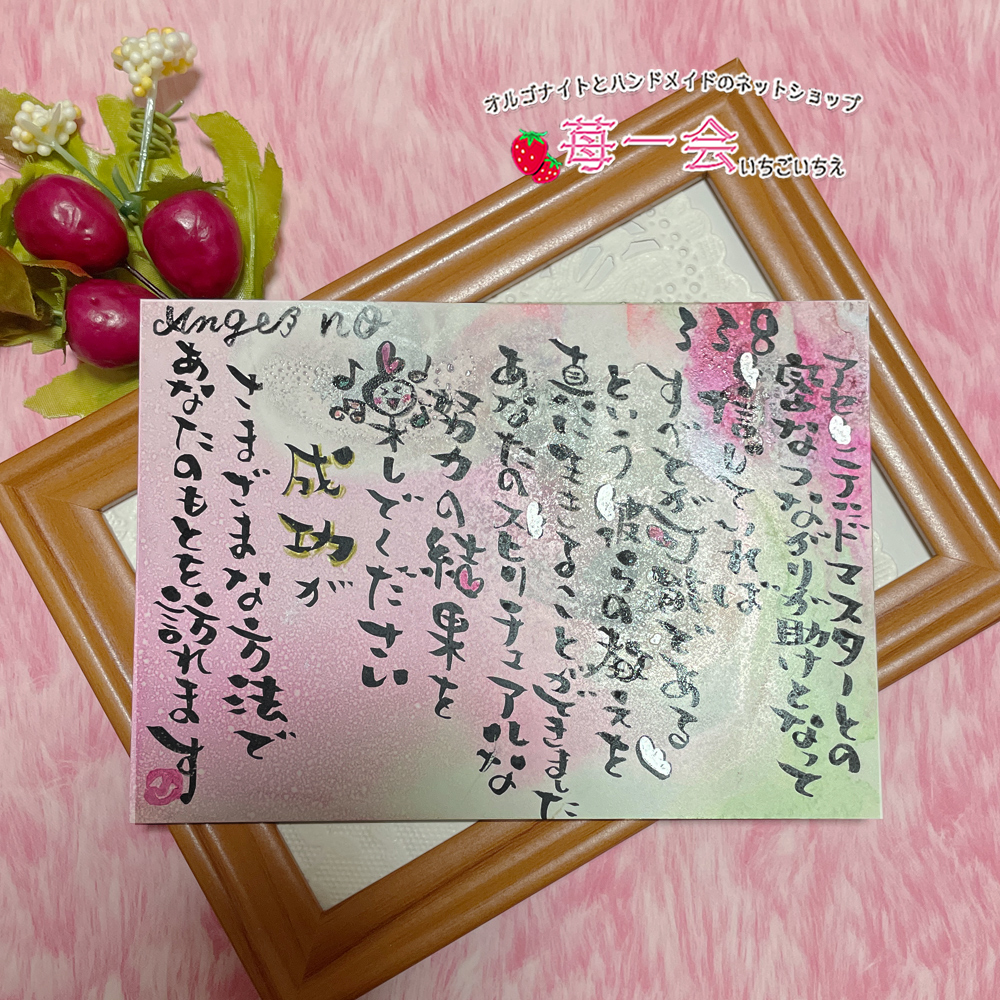 オルゴナイトとハンドメイドのネットショップ
苺一会
いちごいちえ
Angel no
338
アセンテッドマスターとの
密なつながりが助けとなって
信じていれば
すべてが可能である
という彼らの教えを
真に生きることができました
あなたのスピリチュアルな
努力の結果を
楽しんでください
成功が
さまざまな方法で
あなたのもとを訪れます